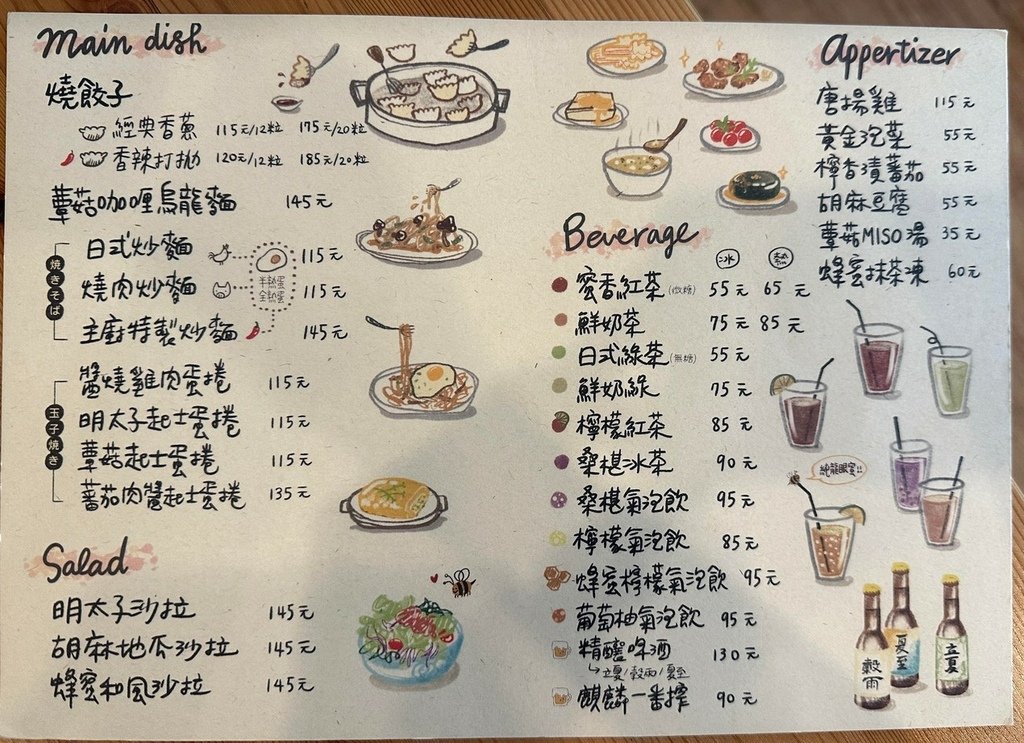 Main dish
燒餃子
經典香蔥 115元/12粒 175元/20粒
香辣打拋 120元/12粒 185元/20粒
蕈菇咖喱烏龍麵 145元
焼きそば
日式炒麵 115元
燒肉炒麵 115元
主廚特製炒麵 145元
半熟蛋
全熟蛋
玉子焼き
醬燒雞肉蛋捲 115元
明太子起士蛋捲 115元
蕈菇起士蛋捲 115元
蕃茄肉醬起士蛋捲 135元
Salad
明太子沙拉 145元
胡麻地瓜沙拉 145元
蜂蜜和風沙拉 145元
Appertizer
唐揚雞 115元
黃金泡菜 55元
檸香漬蕃茄 55元
胡麻豆腐 55元
蕈菇MISO湯 35元
蜂蜜抹茶凍 60元
Beverage
冰 熱
蜜香紅茶(微糖) 55元 65元
鮮奶茶 75元 85元
日式綠茶(無糖) 55元
鮮奶綠 75元
檸檬紅茶 85元
桑椹冰茶 90元
桑椹氣泡飲 95元
檸檬氣泡飲 85元
蜂蜜檸檬氣泡飲 95元
葡萄柚氣泡飲 95元
精釀啤酒 130元
立夏/穀雨/夏至
麒麟一番搾 90元
純龍眼蜜!!
穀雨
夏至
立夏